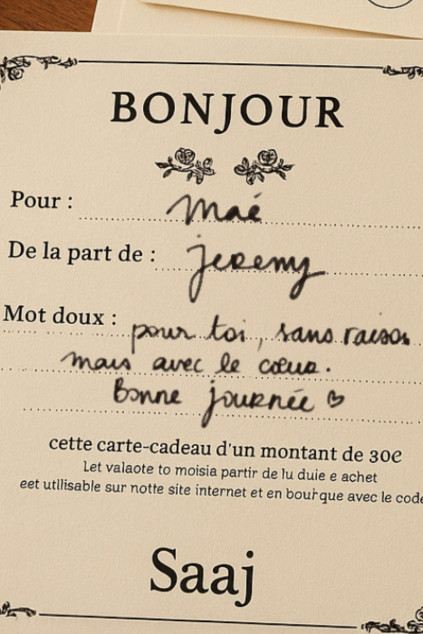 BONJOUR
Pour : Maé
De la part de : jeremy
Mot doux : pour toi, sans raison
mais avec le cœur.
Bonne journée ♡
cette carte-cadeau d'un montant de 30€
Let valaote to moisia partir de lu duie e achet
eet utllisable sur notte site internet et en bouŕque avec le code
Saaj